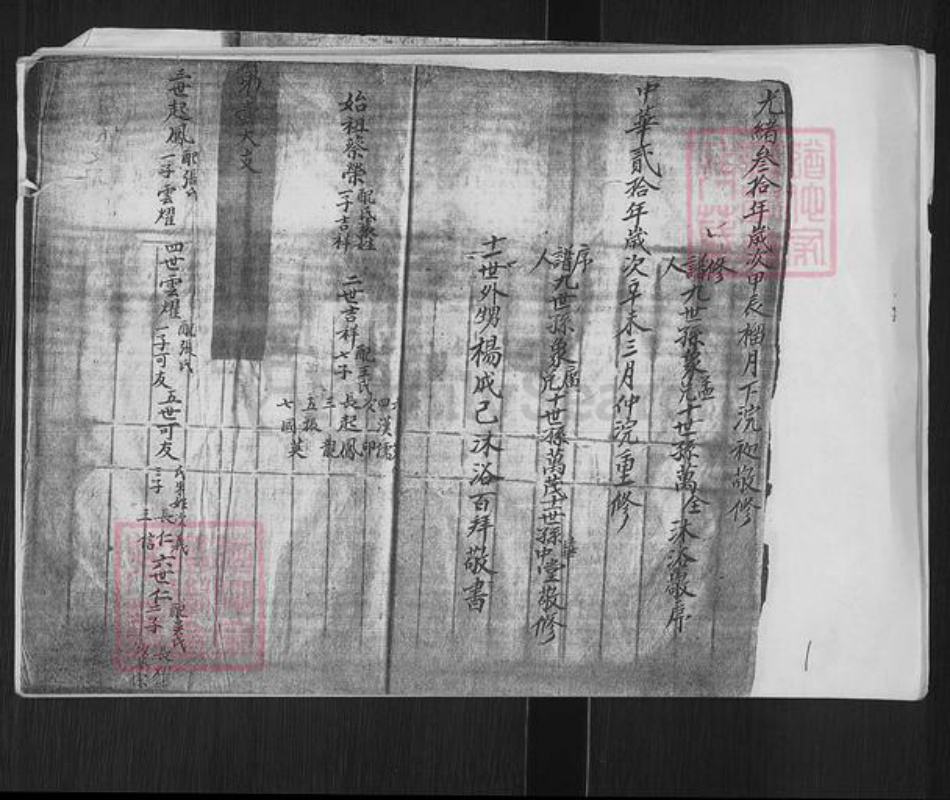 光緒叁拾年歲次甲辰榴月下浣初敬修
修譜人九世孫象兄十世孫萬全沐浴敬序
中華貳拾年歲次辛未三月仲浣重修
序譜人九世孫象兄十世孫萬茂十一世孫中堂敬修
十一世外甥楊成己沐浴百拜敬書
始祖蔡榮 一子吉祥 二世吉祥 配王氏 七子 長起鳳 次印 三龍 四漢儒 五振 七國英
第 大支
三世起鳳 配張氏 一子雲耀 四世雲耀 配張氏 一子可友 五世可友 三子 長仁 三信 六世仁 配吳氏 二子